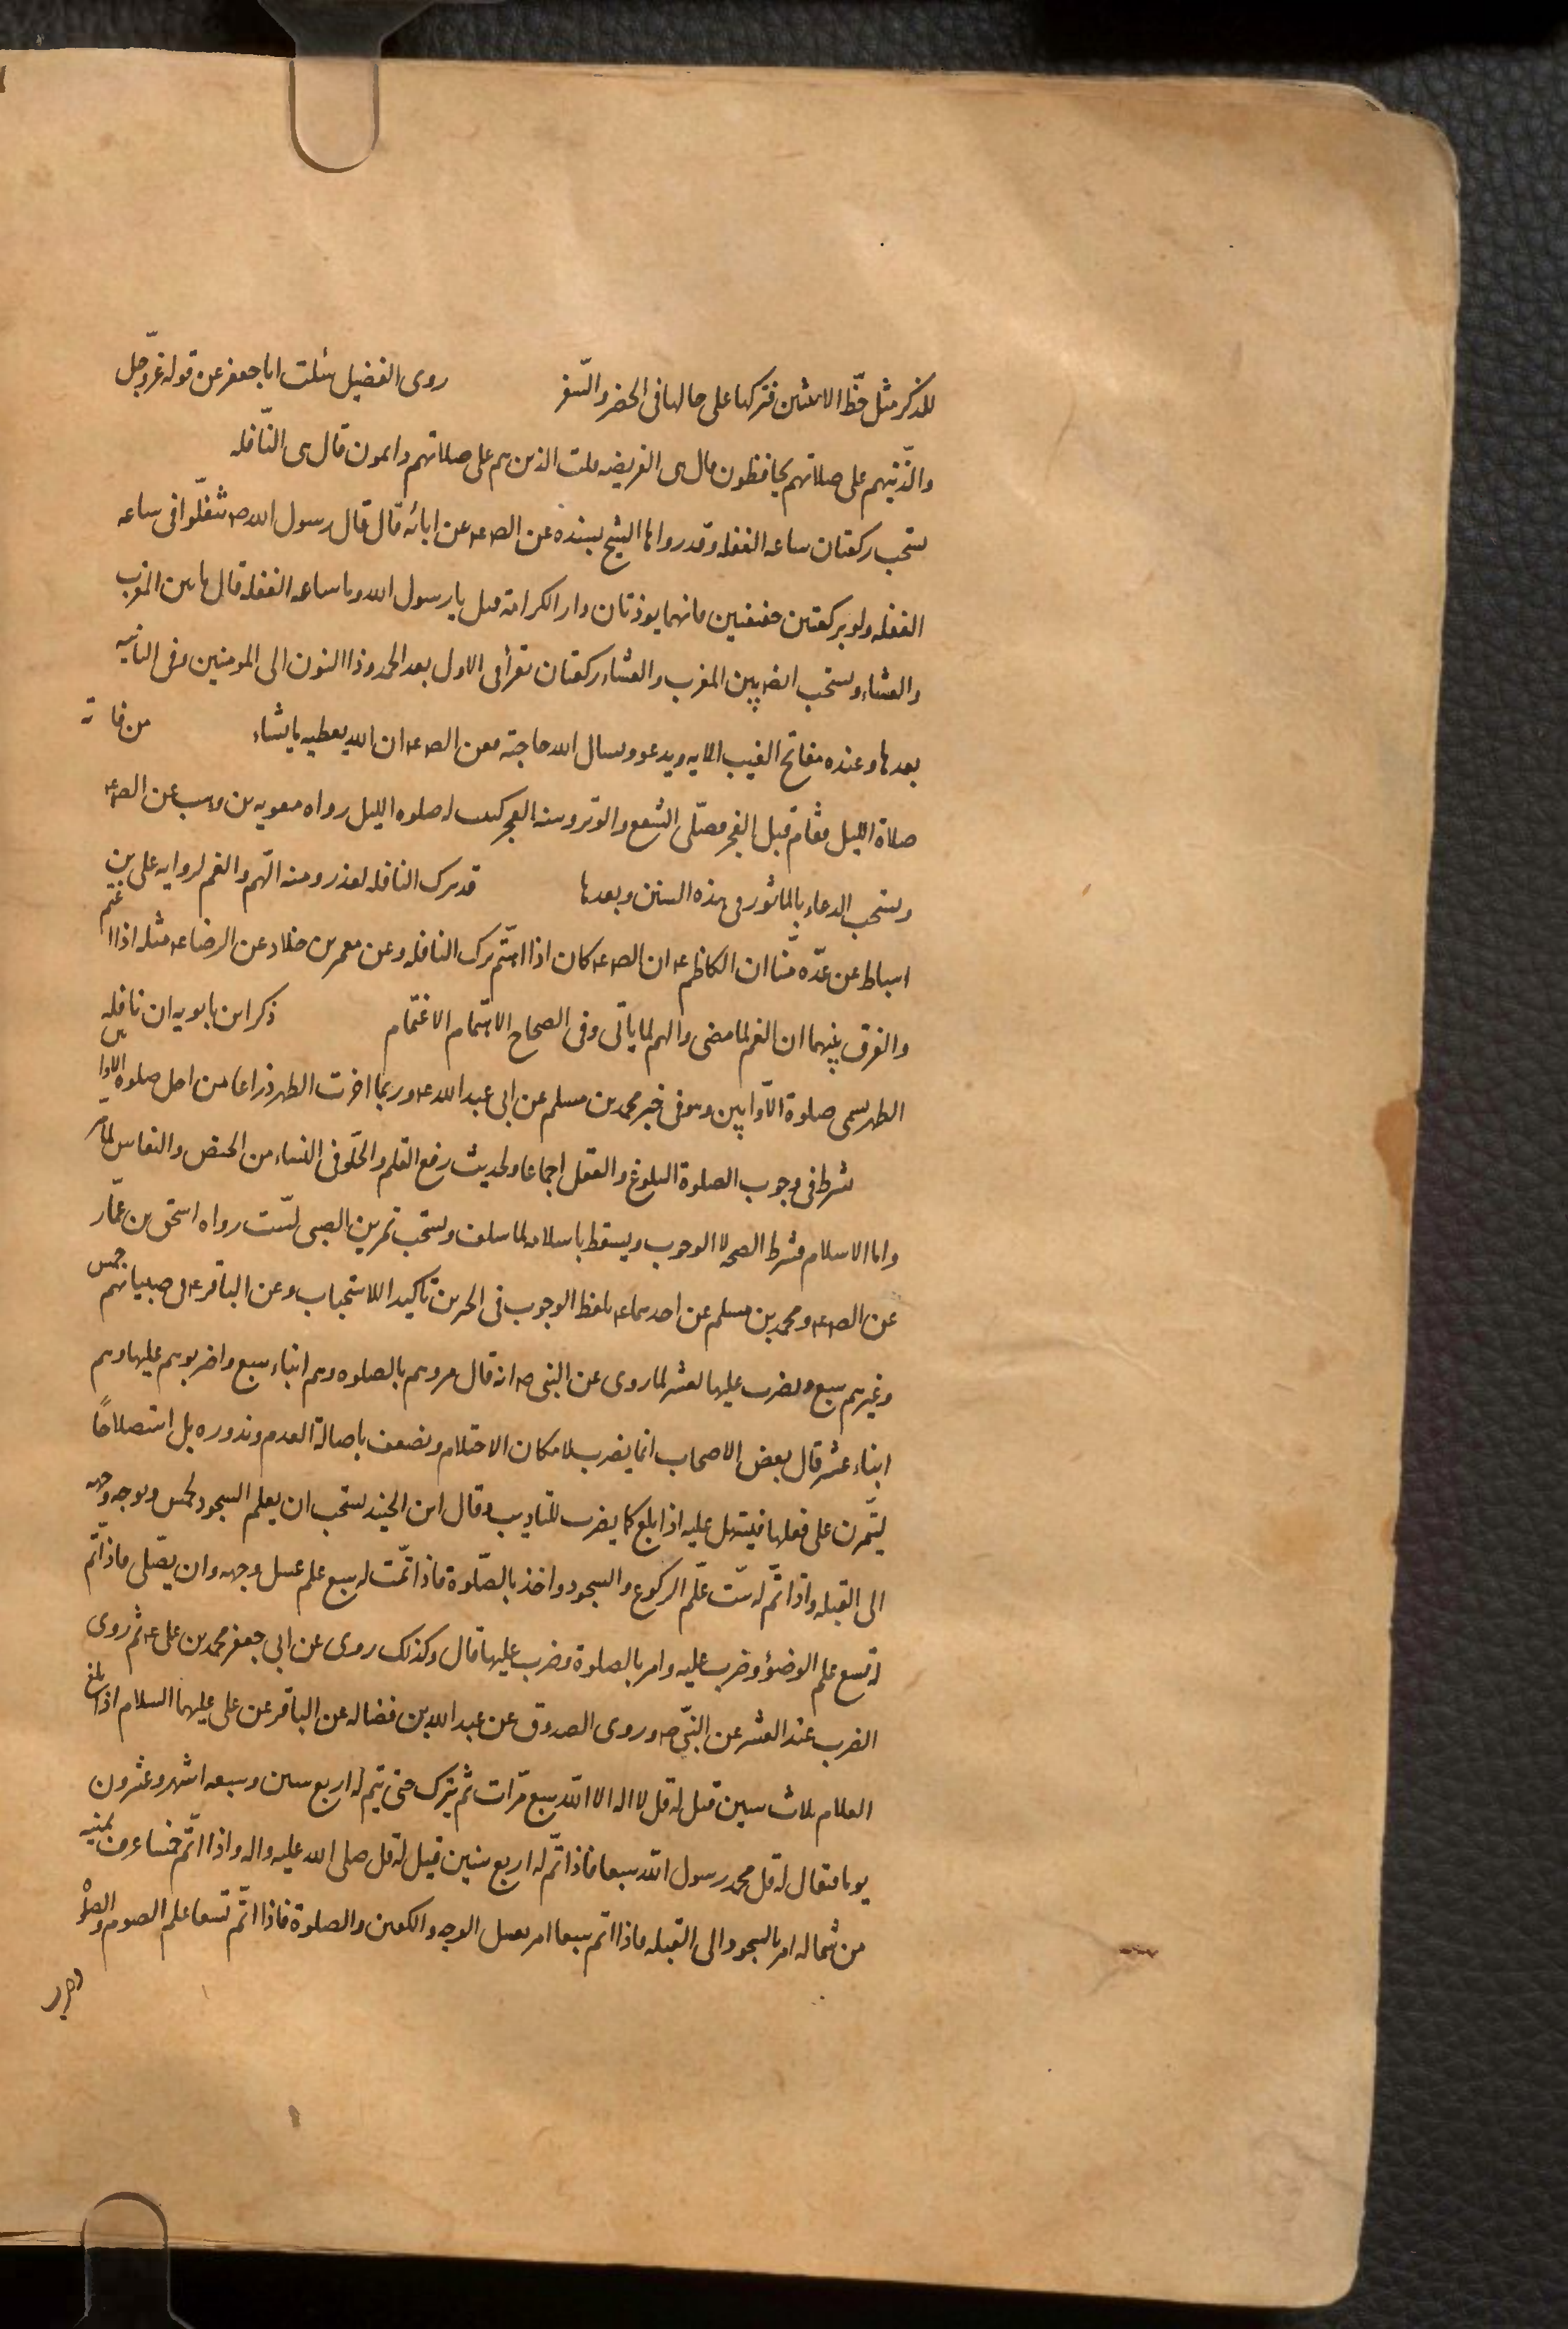 للذكر مثل حظّ الانثين فتركها على حالها فى الحضر والسّفر روى الفضيل سئلت اباجعفر عن قوله عزّوجلّ
والّذينهم على صلاتهم يحافظون قال هى الفريضه قلت الذين هم على صلاتهم دايمون قال هى النّافله
ستحب ركعتان ساعه الغفله وقد رواها الشيخ بسنده عن الص ع عن ابائه قال قال رسول الله ص تنفّلوا فى ساعه
الغفله ولو بركعتين خفيفتين فانهما يورثان دار الكرامة قيل يا رسول الله وما ساعه الغفله قال ما بين المغرب
والعشاء وستحب ايضه بين المغرب والعشاء ركعتان تقرأ فى الاول بعد الحمد وذا النون الى المومنين وفى الثانيه
بعدها وعنده مفاتح الغيب الايه ويدعو ويسال الله حاجته فعن الص ع ان الله يعطيه ما يشاء من فاته
صلاة الليل فقام قبل الفجر فصلّى الشفع والوتر وسنه الفجر كتبت له صلوه الليل رواه معويه بن وهب عن الص ع
وستحب الدعاء بالماثور فى هذه السنن وبعدها قد يترك النافله لعذر ومنه الهّم والغم لروايه على بن
اسباط عن عدّه منّا ان الكاظم ع ان الص ع كان اذا اهتّم ترك النافله وعن معمر بن خلاد عن الرضا ع مثله اذا اغتم
والفرق بينهما ان الغم لما مضى والهم لما ياتى وفى الصحاح الاهتمام الاغتمام ذكر ابن بابويه ان نافله
الظهر سمى صلوة الاّوابين وهو فى خبر محمد بن مسلم عن ابى عبد الله ع وربما اخرت الظهر ذراعا من اجل صلوه الاوابين
شرط فى وجوب الصلوة البلوغ والعقل اجماعا ولحديث رفع القلم والخلّو فى النساء من الحيض والنفاس لما مر
واما الاسلام فشرط الصحه لا الوجوب ويسقط باسلامه لما سلف وستحب تمرين الصبى لسّت رواه اسحق بن عمّار
عن الص ع ومحمد بن مسلم عن احدهما ع بلفظ الوجوب فى الخبرين تاكيدا للاستحباب وعن الباقر ع فى صبيانهم خمس
وغيرهم سبع ويضرب عليها لعشر لما روى عن النبى ص انه قال مروهم بالصلوه وهم ابناء سبع واضربوهم عليها وهم
ابناء عشر قال بعض الاصحاب انما يضرب لامكان الاحتلام ويضعف باصالة العدم وندوره بل استصلاحًا
ليتّمرن على فعلها فيتسهل عليه اذا بلغ كما يضرب للتاديب وقال ابن الجنيد ستحب ان يعلم السجود لخمس ويوجه وجهه
الى القبله واذا تمّ له ستّ علّم الركوع والسجود واخذ بالصّلوة فاذا تمّت له سبع علم غسل وجهه وان يصّلى فاذا تمّ
له تسع علم الوضوؤ وضرب عليه وامر بالصلوة وضرب عليها قال وكذلك روى عن ابى جعفر محمد بن على ع ثم روى
الضرب عند العشر عن النبّى ص وروى الصدوق عن عبد الله بن فضاله عن الباقر عن على عليهما السلام اذا بلغ
الغلام ثلاث سنين قيل له قل لا اله الا الله سبع مّرات ثم يترك حتى يتم له اربع سنين وسبعه اشهر وعشرون
يوما فيقال له قل محمد رسول الله سبعا فاذا تمّ له اربع سنين قيل له قل صلى الله عليه واله واذا اتّم خمسا عرف يمينه
من شماله امر بالسجود الى القبله فاذا اتم سبعا امر بغسل الوجه والكفين والصلوة فاذا اتّم تسعا علم الصوم والوضؤ
وضرب